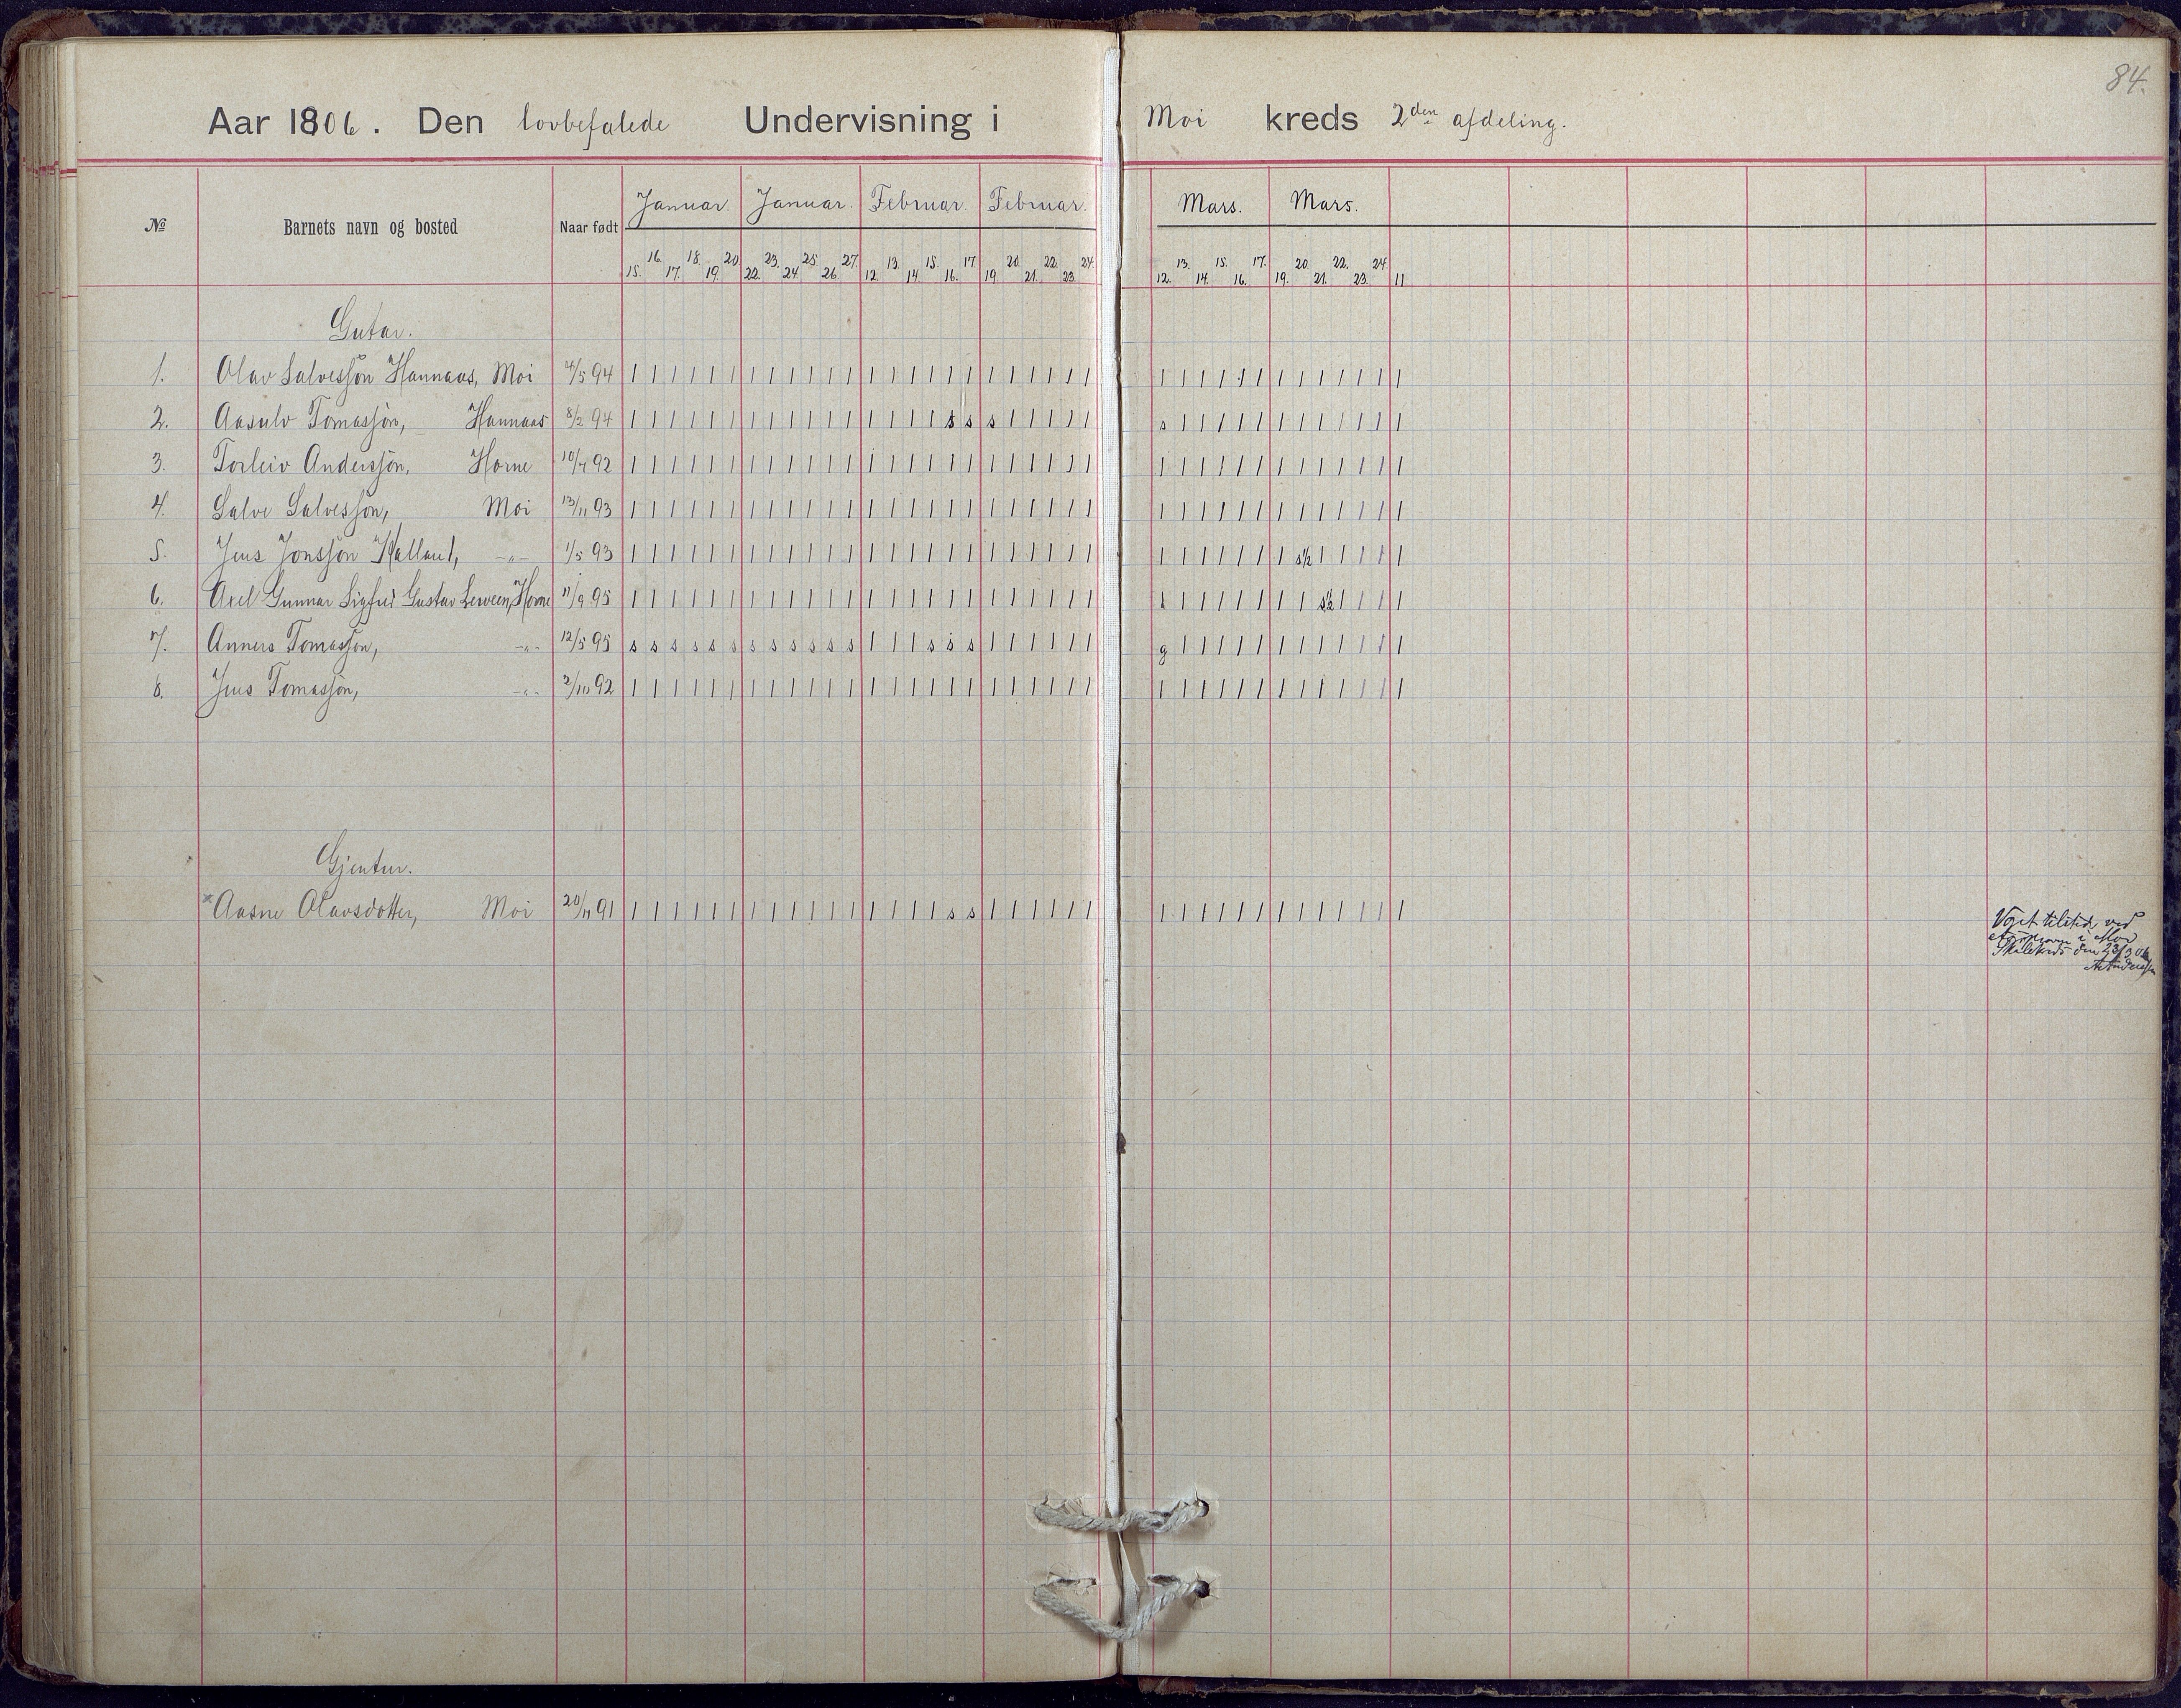 84.
Aar 1906. Den lovbefalede Undervisning i Moi kreds 2den afdeling.
№ Barnets navn og bosted Naar født Januar. Januar. Februar. Februar. Mars. Mars.
15. 16. 17. 18. 19. 20. 22. 23. 24. 25. 26. 27. 12. 13. 14. 15. 16. 17. 19. 20. 21. 22. 23. 24. 12. 13. 14. 15. 16. 17. 19. 20. 21. 22. 23. 24. 11
Gutar.
1. Olav Salvesson Hannaas, Moi 4/5 94 | | | | | | | | | | | | | | | | | | | | | | | | | | | | | | | | | | | | |
2. Aasulv Tomasson, Hannaas 8/2 94 | | | | | | | | | | | | | | | | s s s | | | | | s | | | | | | | | | | | | |
3. Torleiv Andersson, Horne 10/7 92 | | | | | | | | | | | | | | | | | | | | | | | | | | | | | | | | | | | | |
4. Salve Salvesson, Moi 13/11 93 | | | | | | | | | | | | | | | | | | | | | | | | | | | | | | | | | | | | |
5. Jens Jonsson Hatland, -"- 1/5 93 | | | | | | | | | | | | | | | | | | | | | | | | | | | | | | | s½ | | | | |
6. Axel Gunnar Sigfred Gustav Horne 11/9 95 | | | | | | | | | | | | | | | | | | | | | | | | s | | | | | | | s½ | | | |
7. Anners Tomasson, -"- 12/5 95 s s s s s s s s s s s s | | | s s s | | | | | | g | | | | | | | | | | | |
8. Jens Tomasson, -"- 2/10 92 | | | | | | | | | | | | | | | | | | | | | | | | | | | | | | | | | | | | |
Gjentur.
× Aasne Olavsdotter, Moi 20/11 91 | | | | | | | | | | | | | | | | s s | | | | | | | | | | | | | | | | | | |
tilsted ved
i Moi
Skulekreds den 23/3 06